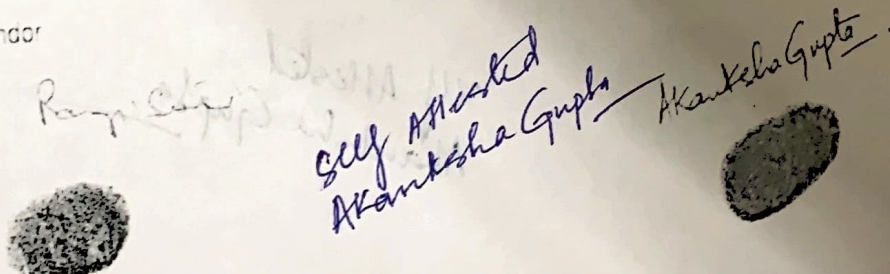 ndor
Self Attested
Akanksha Gupta
Akanksha Gupta